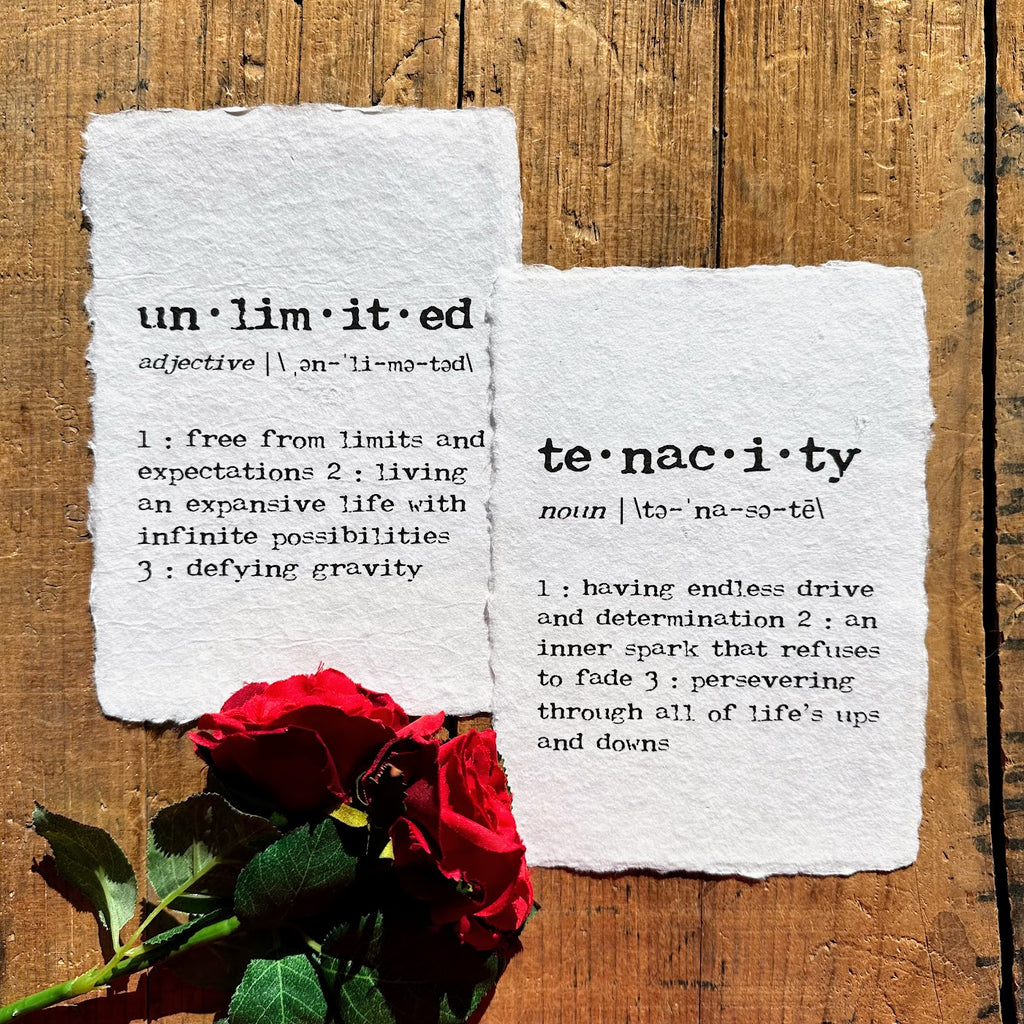 un·lim·it·ed
adjective |\ ˌən-ˈli-mə-təd\
1 : free from limits and
expectations 2 : living
an expansive life with
infinite possibilities
3 : defying gravity
te·nac·i·ty
noun | \tə-ˈna-sə-tē\
1 : having endless drive
and determination 2 : an
inner spark that refuses
to fade 3 : persevering
through all of life's ups
and downs